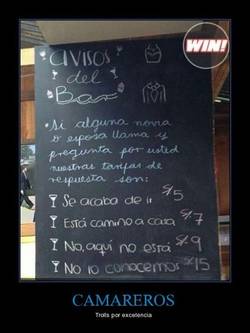 avisos
del
Bar
WIN!
• Si alguna novia
o esposa llama y
pregunta por usted
nuestras tarifas de
respuesta son:
Se acaba de ir S/.5
Está camino a casa S/.7
No, aquí no está S/.9
No lo conocemos S/.15
CAMAREROS
Trolls por excelencia